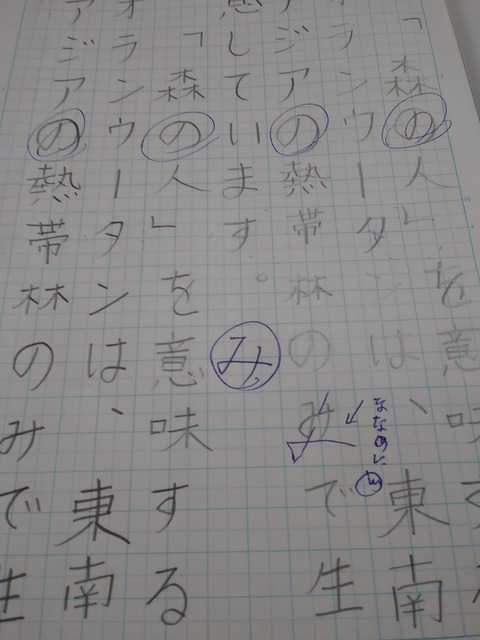 「森の人」を意味す
オランウータンは、東南
アジアの熱帯林のみで生
息しています。
「森の人」を意味する
オランウータンは、東南
アジアの熱帯林のみで生
み